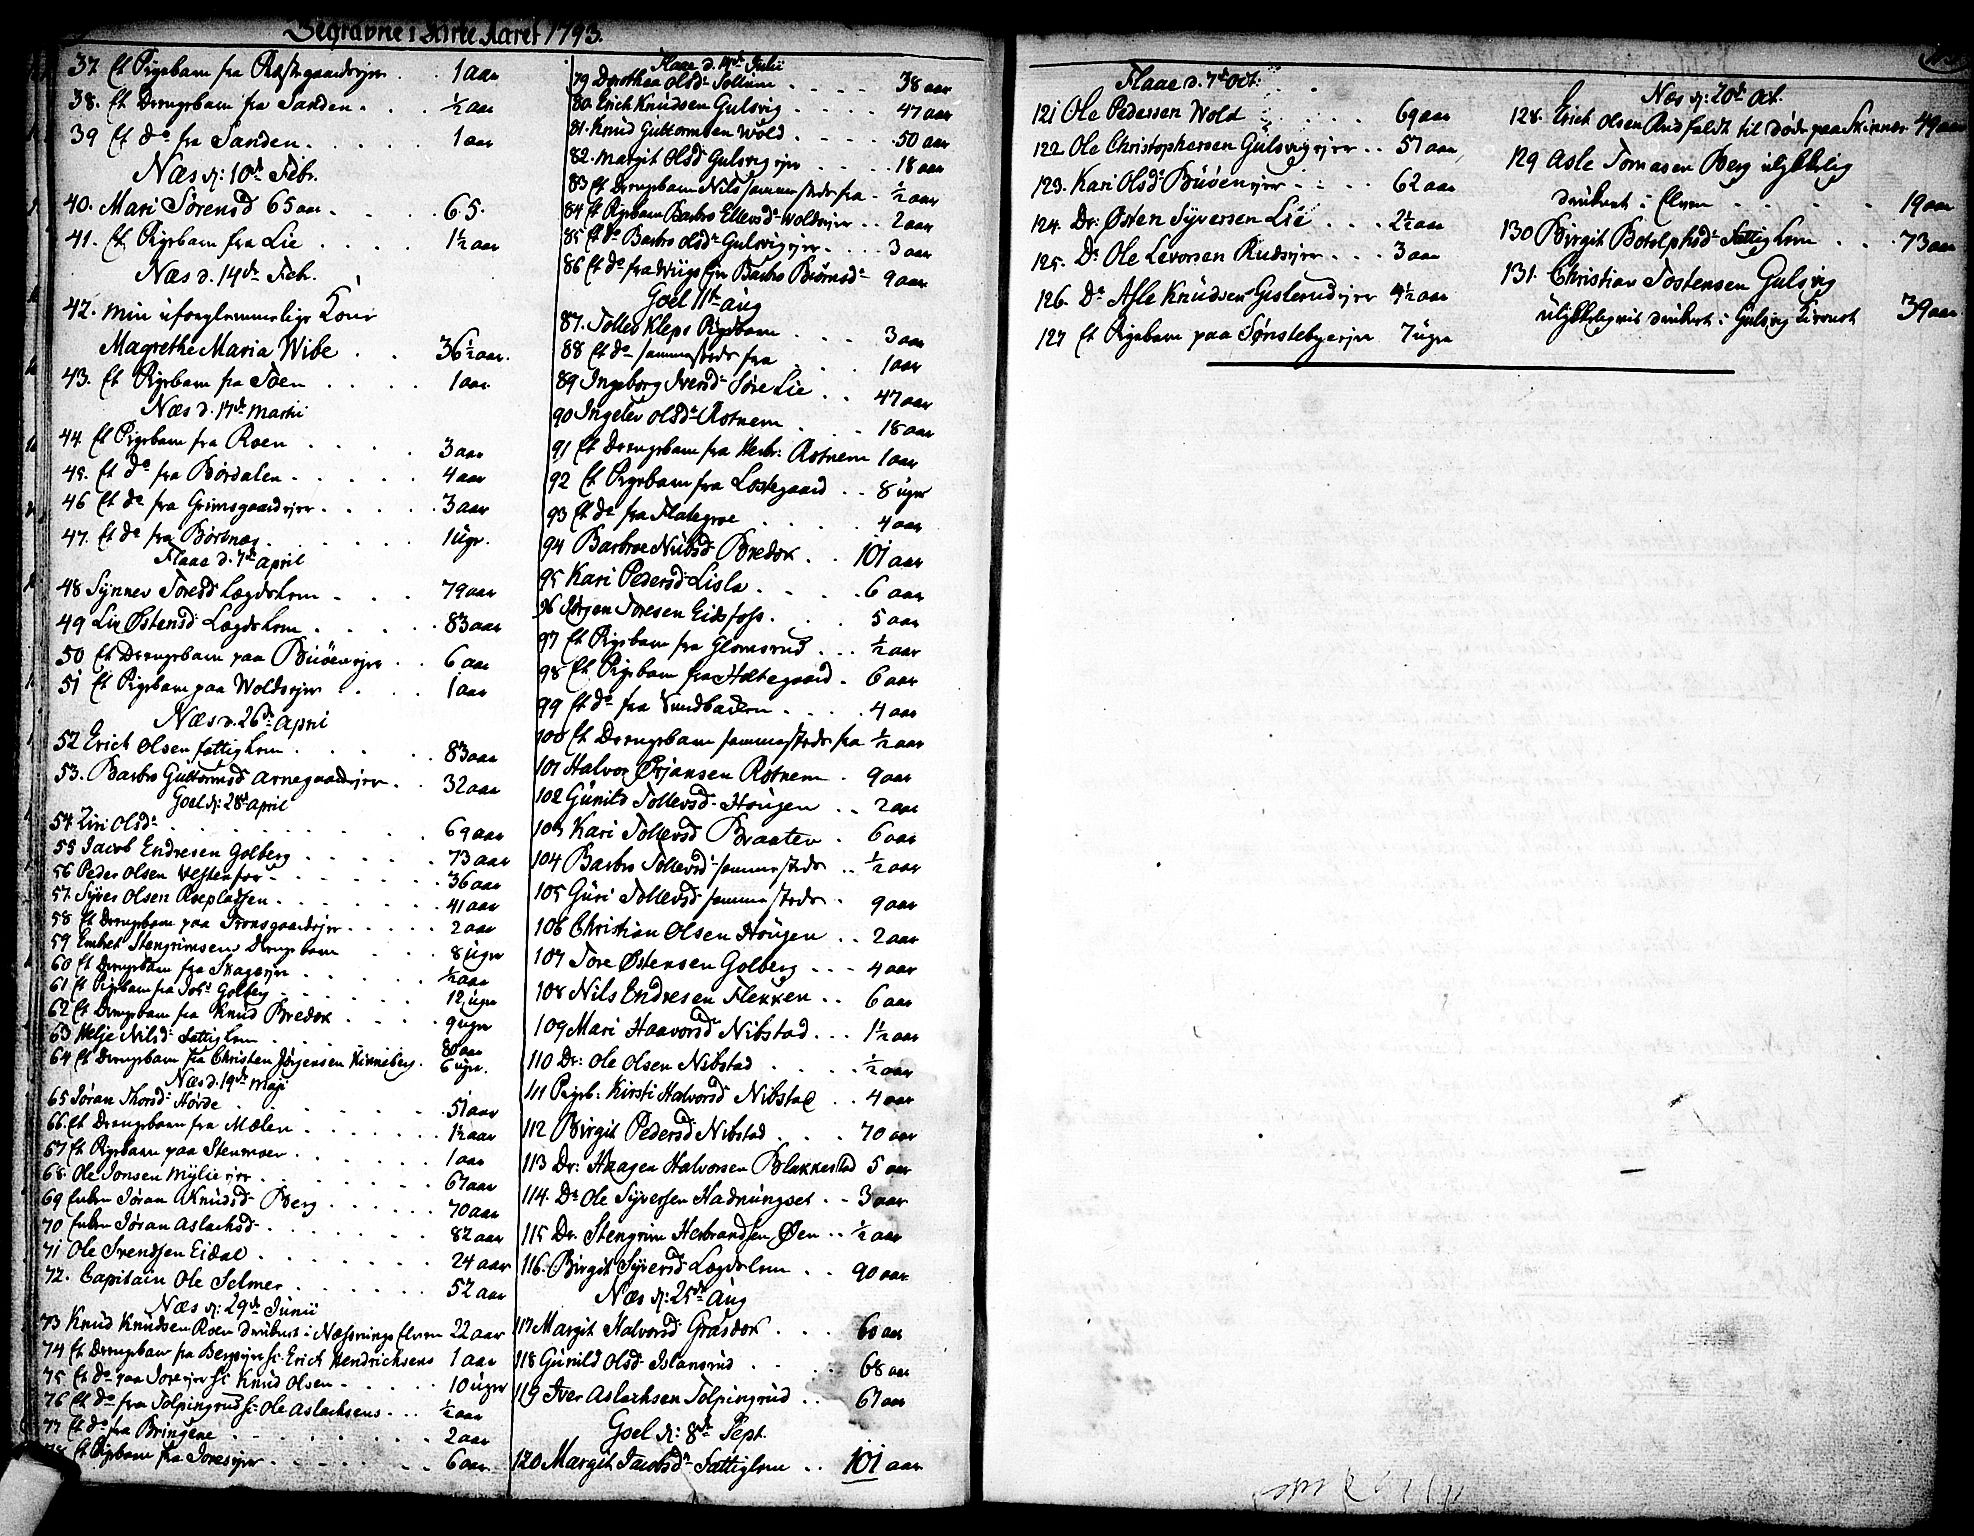 Begravne i Kirke Aaret 1793.
37. Et Pigebarn fra Præstegaardseyer . . 1 aar
38. Et Drengebarn fra Sanden . . ½ aar
39 Et do fra Sanden . . . . . 1 aar
Næs d: 10de Febr.
40. Mari Sørensd 65 aar . . . . 65.
41. Et Pigebarn fra Lie . . . 1½ aar
Næs d. 14de Febr.
42. min uforglemmelige Kone
Magrethe Maria Wibe . . 36½ aar.
43. Et Pigebarn fra Toen . . . . 1 aar.
Næs d. 17de Martii
44. Et Pigebarn fra Roen . . . . 3 aar
45. Et do fra Børdalen . . . . . 4 aar
46 Et do fra Grimsgaardeyer . . . . . 3 aar
47. Et do fra Børtnæs . . . . . 1 uge.
Flaae d. 7de april
48 Synnev Toresd Lægdslem . . . 79 aar
49 Liv Østensd Lægdslem . . . . . 83 aar
50 Et Drengebarn paa Buøeneyer . . 6 aar
51 Et Pigebarn paa Woldseyer . . . 1 aar
Næs d. 26de April
52 Erich Olsen fattiglem . . . . . 83 aar
53. Barbro Guttormsd Arnegaardseyer . . 32 aar
Goel d: 28de april
54 Liv Olsd: . . . . . . . 69 aar
55 Jacob Endresen Golberg . . . . . 73 aar
56 Peder Olsen Westenfor . . . . . . 36 aar
57. Syver Olsen Roepladsen . . . . . . 41 aar
58 Et Drengebarn paa Tronsgaardeyer . . . . . 2 aar
59 Embret Stengrimsens Drengebarn . . . 8 uger
60 Et Drengebarn fra Skageyer . . . . . ½ aar
61 Et Pigebarn fra Golberg . . . . . 12 uger
62 Et Drengebarn fra Knud Bredok . . . . 9 uger
63 Helje Nilsd: fattiglem . . . . . . 80 aar
64 Et Drengebarn fra Christen Jørgensen Kinneberg . 6 uger.
Næs d. 19de Maji
65 Jøran Thorsd: Hørde . . . . . . . 51 aar
66. Et Drengebarn fra Mælen . . . . . . 1½ aar
67 Et Pigebarn paa Stenmoen . . . . . . 1 aar
68. Ole Jonsen Mylieeyer . . . . . . 67 aar
69 Enken Jøran Knudsd Berg . . . . . . 70 aar
70 Enken Jøran Aslachsd . . . . . . 82 aar
71 Ole Svendsen Eidal . . . . . . 24 aar
72. Capitain Ole Selmer . . . . . . 52 aar
Næs d: 29de Junii
73 Knud Knudsen Roen druknet i Næssnings Elven 22 aar
74 Et Drengebarn fra Bergseyer s: Erich Hendrichsens 1 aar
75 Et do paa Toreeyer s: Knud Olsen . . . . 10 uger
76 Et do fra Tolpingrud s: Ole Aslachsens . . . ½ aar
77 Et do fra Bringene . . . . . . . 2 aar
78 Et Pigebarn fra Toreseyer . . . . . . 6 aar
Flaae d. 14de Julii
79 Dorothea Olsd: Sollien . . . . 38 aar
80. Erich Knudsen Gulsvig . . . . 47 aar
81. Knud Guttormsen Wold . . . . 50 aar
82. Margit Olsd Gulsvigeyer . . . . 18 aar
83 Et Drengebarn Nils sammesteds fra . ½ aar
84 Et Pigebarn Barbro Ellevsd: Woldseyer . . 2 aar
85 Et do Barbro Olsd: Gulsvigeyer . . . 3 aar
86 Et do fra Barbro Biørnsd: 9 aar
Goel 11te aug
87. Tollev Kleps Pigebarn . . . 3 aar
88 Et do sammesteds fra . . . 1 aar
89 Ingeborg Iversd: Søre Lie . . 47 aar
90 Ingelev Olsd: Rotnem . . . 18 aar
91 Et Drengebarn fra Herbr: Rotnem 1 aar
92 Et Pigebarn fra Lostegaard . . 8 uger
93 Et do fra Flategroe . . . . 4 aar
94 Barbroe Nubsd: Bredok . . 101 aar
95 Kari Pedersd: Lisla . . . . 6 aar
96 Jørgen Toresen Eidsfoss . . . . 5 aar
97 Et Pigebarn fra Glomsrud . . . ½ aar
98 Et Pigebarn fra Holtegaard . 6 aar
99 Et do fra Sundbacken . . . . 4 aar
100 Et Drengebarn sammesteds fra ½ aar
101 Halvor Ørjansen Rotnem . 9 aar
102 Gunild Tollevsd: Hougen . . 2 aar
103 Kari Tollevsd Braaten . 6 aar
104 Barbro Tollevsd: sammesteds . . ½ aar
105 Guri Tollevsd: sammesteds . 9 aar
106 Christian Olsen Hougen . . 2 aar
107 Tore Østensen Golberg . . . 4 aar
108 Nils Endresen Flekken . . 6 aar
109 Mari Haavorsd Nibstad . . . 1½ aar
110 Dr: Ole Olsen Nibstad . . . . ½ aar
111 Pigeb: Kirsti Halvorsd Nibstad . . 4 aar
112 Birgit Pedersd Nibstad . . . 70 aar
113 Dr: Haagen Halvorsen Blakkestad 5 aar
114. Do Ole Syversen Hadnungset . . 3 aar
115 Dr. Stengrim Herbrandsen Øen . . ½ aar
116. Birgit Syversd: Lægdslem . . 90 aar
Næs d: 25de Aug
117 Margit Halvorsd Grasdok . . . 60 aar
118 Gunild Olsd: Islansrud . . . . 68 aar
119 Iver Aslachsen Tolpingrud . . 67 aar
Goel d: 8de Sept.
120 Margit Jacobsd: Fattiglem . . 101 aar
Flaae d. 7de Oct:
121 Ole Pedersen Wold . . . . 69 aar
122 Ole Christophersen Gulsvigeyer . . 57 aar
123. Kari Olsd: Buøeneyer . . . . 62 aar
124. Dr: Østen Syversen Lie . . . 2½ aar
125. Do Ole Levorsen Rudseyer . . . 3 aar
126. Do Asle Knudsen Gislerudeyer 4½ aar
127 Et Pigebarn paa Sønstebyeeyer 7 uger
Næs d: 20de Oct.
128. Erich Olsen Rud faldt til døde paa Skinnes 49 aar
129 Asle Tomasen Berg ulykkelig
druknet i Elven . . . . . 19 aar
130 Birgit Botolphsd: Fattiglem . . . 73 aar
131. Christian Tostensen Gulsvig
ulykkeligviis druknet i Gulsvig 39 aar